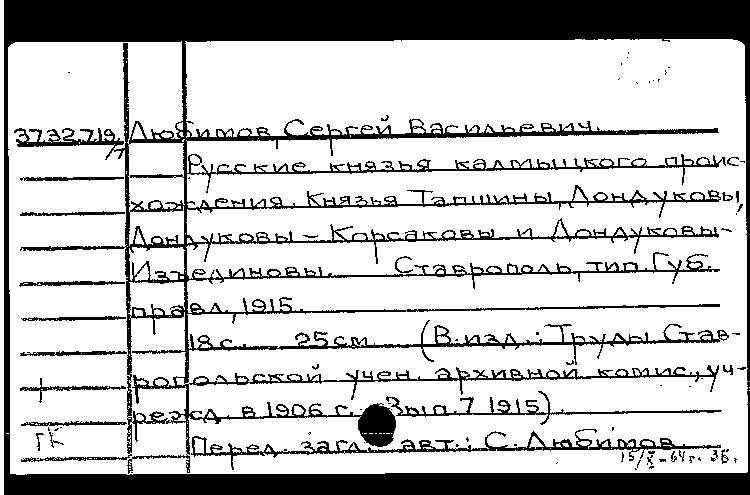 37.32.719. Любимов, Сергей Васильевич.
/П
Русские князья калмыцкого проис-
хождения. Князья Тапшины, Дондуковы,
Дондуковы-Корсаковы и Дондуковы-
Изъединовы. Ставрополь, тип. Губ.
правл., 1915.
18 с. 25 см (В изд.: Труды Став-
ропольской учен. архивной комис., уч-
режд. в 1906 г. Вып. 7 1915).
ГК
Перед загл. авт.: С. Любимов.
15/X-64 г. ЗБ.